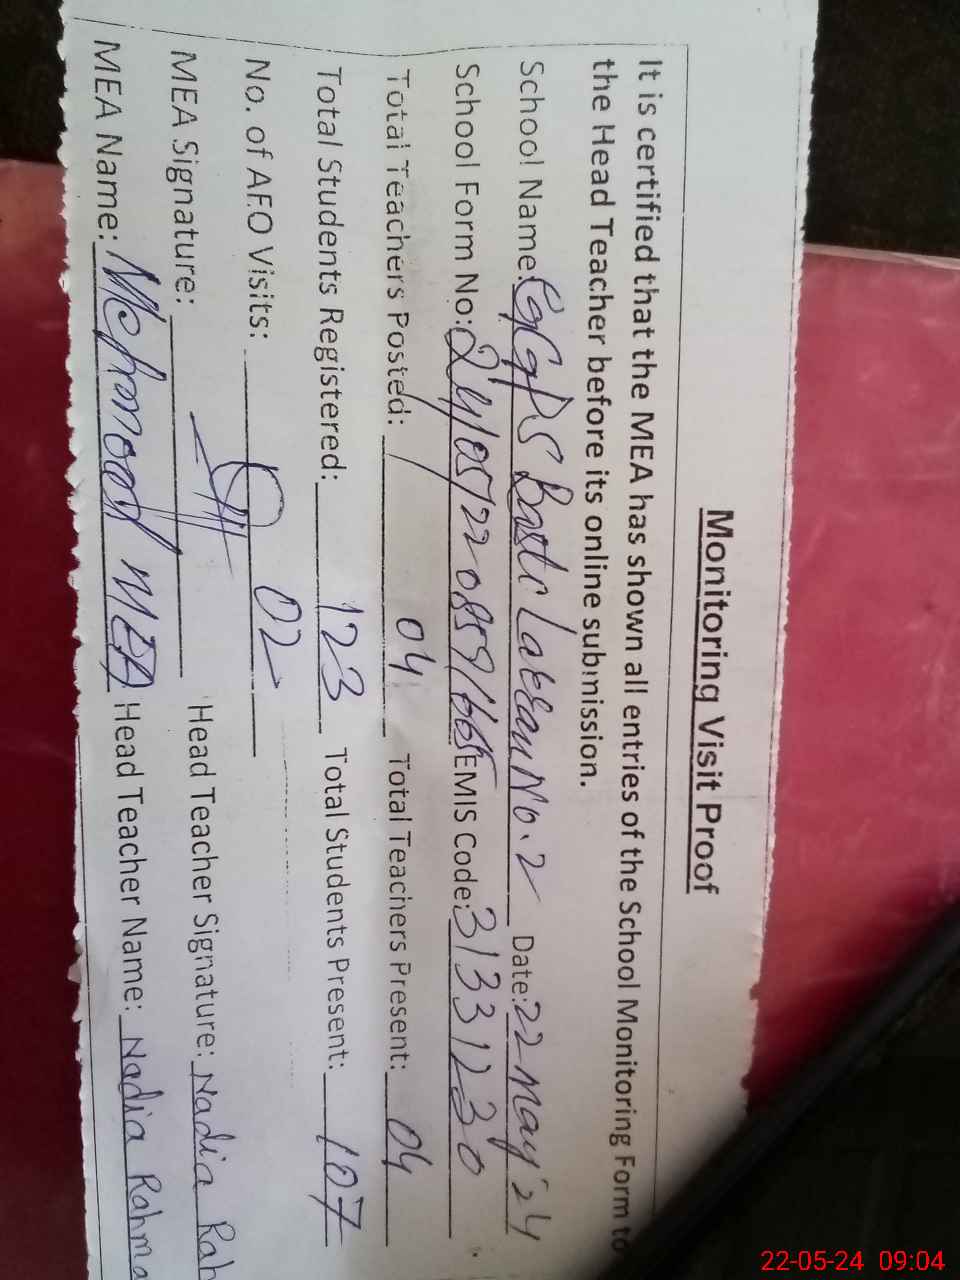 Monitoring Visit Proof
It is certified that the MEA has shown all entries of the School Monitoring Form to
the Head Teacher before its online submission.
School Name: GGPS Basti Lakeau No. 2 Date: 22-May'24
School Form No: EMIS Code: 31331230
Total Teachers Posted: 04 Total Teachers Present: 04
Total Students Registered: 123 Total Students Present: 107
No. of AFO Visits: 02
MEA Signature: Head Teacher Signature: Nadia Rah
MEA Name: Mehmood MEA Head Teacher Name: Nadia Rahma
22-05-24 09:04